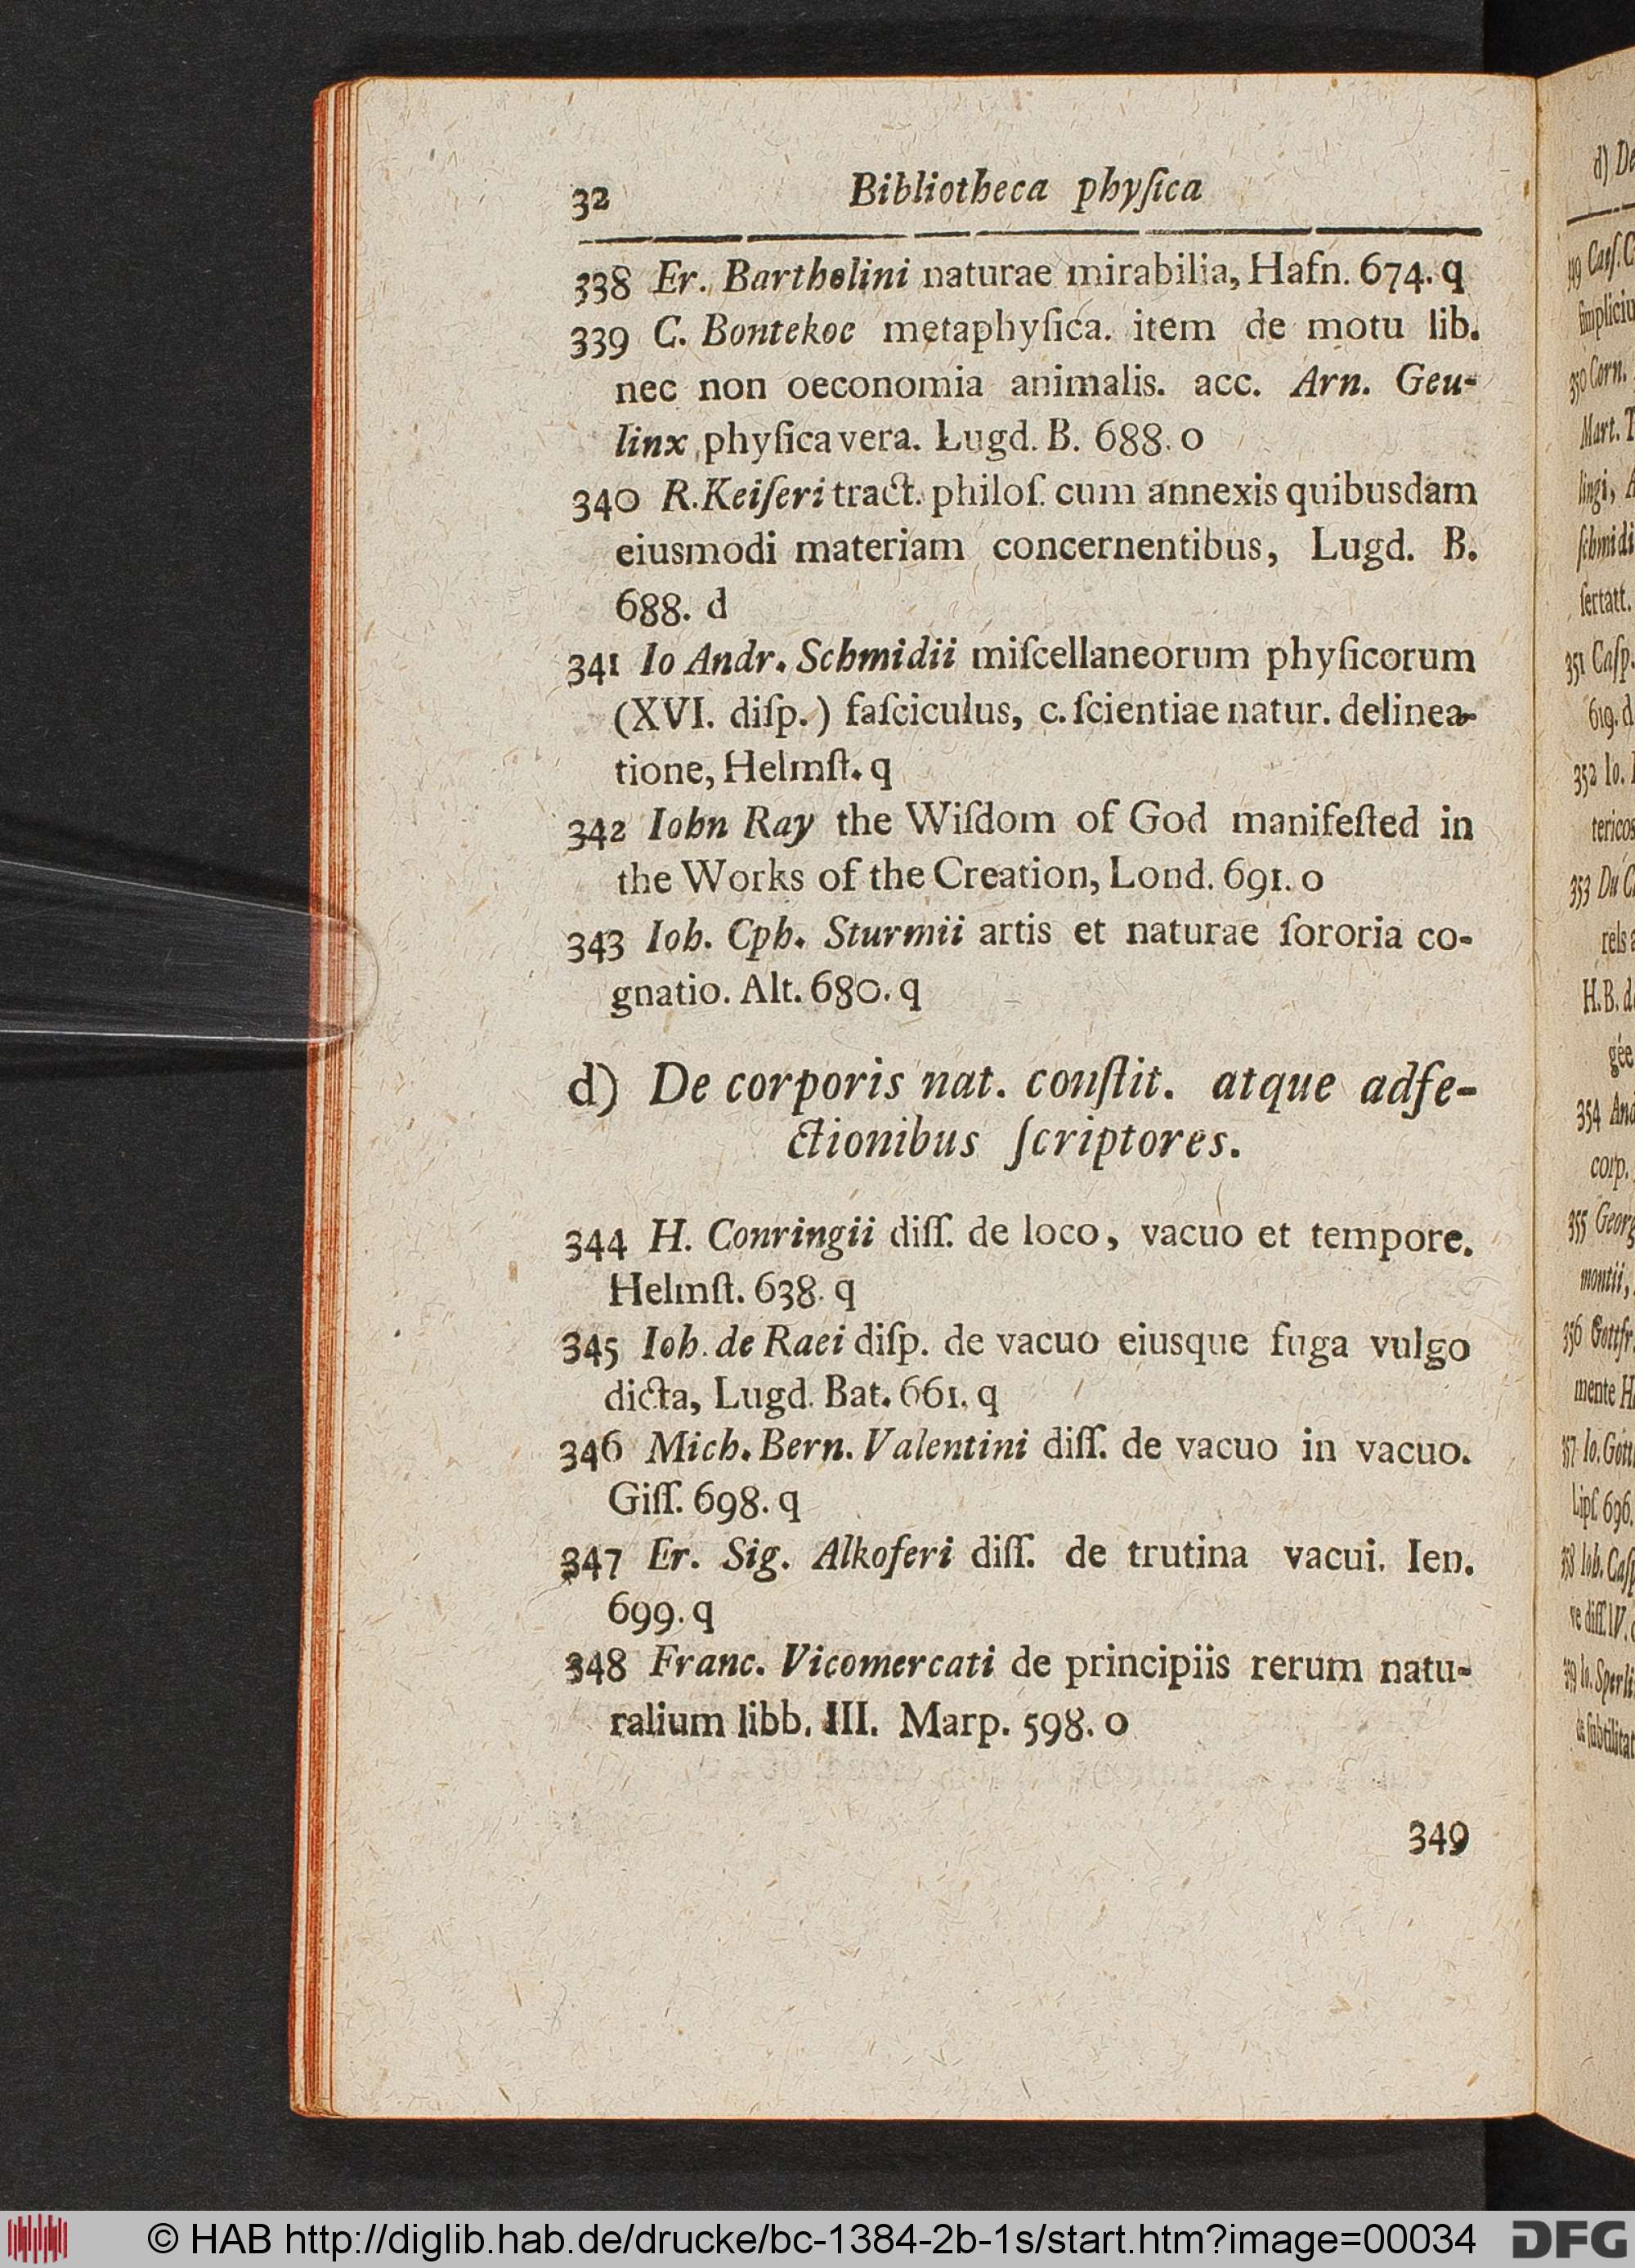 32 Bibliotheca phyſica
338 Er. Bartholini naturae mirabilia, Hafn. 674. q
339 C. Bontekoe metaphyſica. item de motu lib.
nec non oeconomia animalis. acc. Arn. Geu-
linx phyſica vera. Lugd. B. 688. o
340 R. Keiſeri tract. philoſ. cum annexis quibusdam
eiusmodi materiam concernentibus, Lugd. B.
688. d
341 Io Andr. Schmidii miſcellaneorum phyſicorum
(XVI. diſp.) faſciculus, c. ſcientiae natur. delinea-
tione, Helmſt. q
342 Iohn Ray the Wiſdom of God manifeſted in
the Works of the Creation, Lond. 691. o
343 Ioh. Cph. Sturmii artis et naturae ſororia co-
gnatio. Alt. 680. q
d) De corporis nat. conſtit. atque adfe-
ctionibus ſcriptores.
344 H. Conringii diſſ. de loco, vacuo et tempore.
Helmſt. 638. q
345 Ioh. de Raei diſp. de vacuo eiusque fuga vulgo
dicta, Lugd. Bat. 661. q
346 Mich. Bern. Valentini diſſ. de vacuo in vacuo.
Giſſ. 698. q
347 Er. Sig. Alkoferi diſſ. de trutina vacui. Ien.
699. q
348 Franc. Vicomercati de principiis rerum natu-
ralium libb. III. Marp. 598. o
349
d) De
Caeſ. C
ſimpliciu
350 Corn.
Mart. T
lingi, A
ſchmidi
ſertatt.
351 Caſp.
619. d
352 Io.
tericos
353 Du C
rels
H. B. d
gée
354 And
corp.
355 Georg
montii,
356 Gottfr.
mente H
Io. Gott
Lipſ. 696.
Ioh. Caſp
ve diſſ. IV.
Io. Sperli
de ſubtilitat
© HAB http://diglib.hab.de/drucke/bc-1384-2b-1s/start.htm?image=00034 DFG